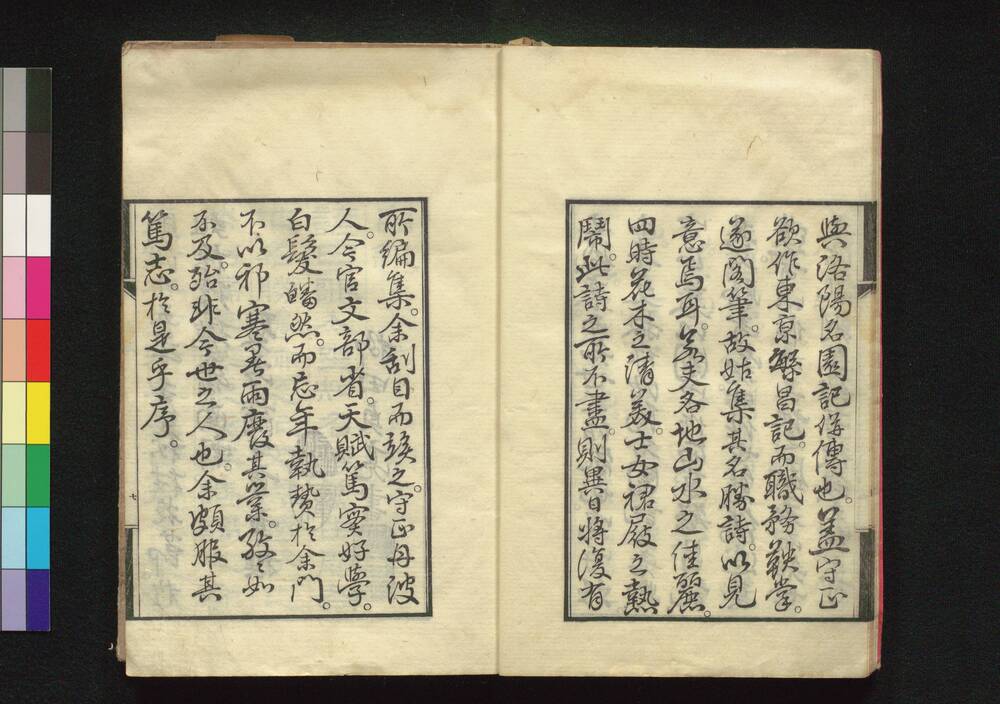 與洛陽名園記併傳也。蓋守正
欲作東京繁昌記。而職務鞅掌。
遂閣筆。故姑集其名勝詩。以見
意焉耳。若夫各地山水之佳麗。
四時花木之清美。士女裙屐之熱
鬧。此詩之所不盡。則異日將復有
所編集。余刮目而竢之。守正丹波
人。今官文部省。天賦篤實好學。
白髮皤然。而忘年執贄於余門。
不以祁寒暑雨廢其業。孜々如
不及。殆非今世之人也。余頗服其
篤志。於是乎序。
七